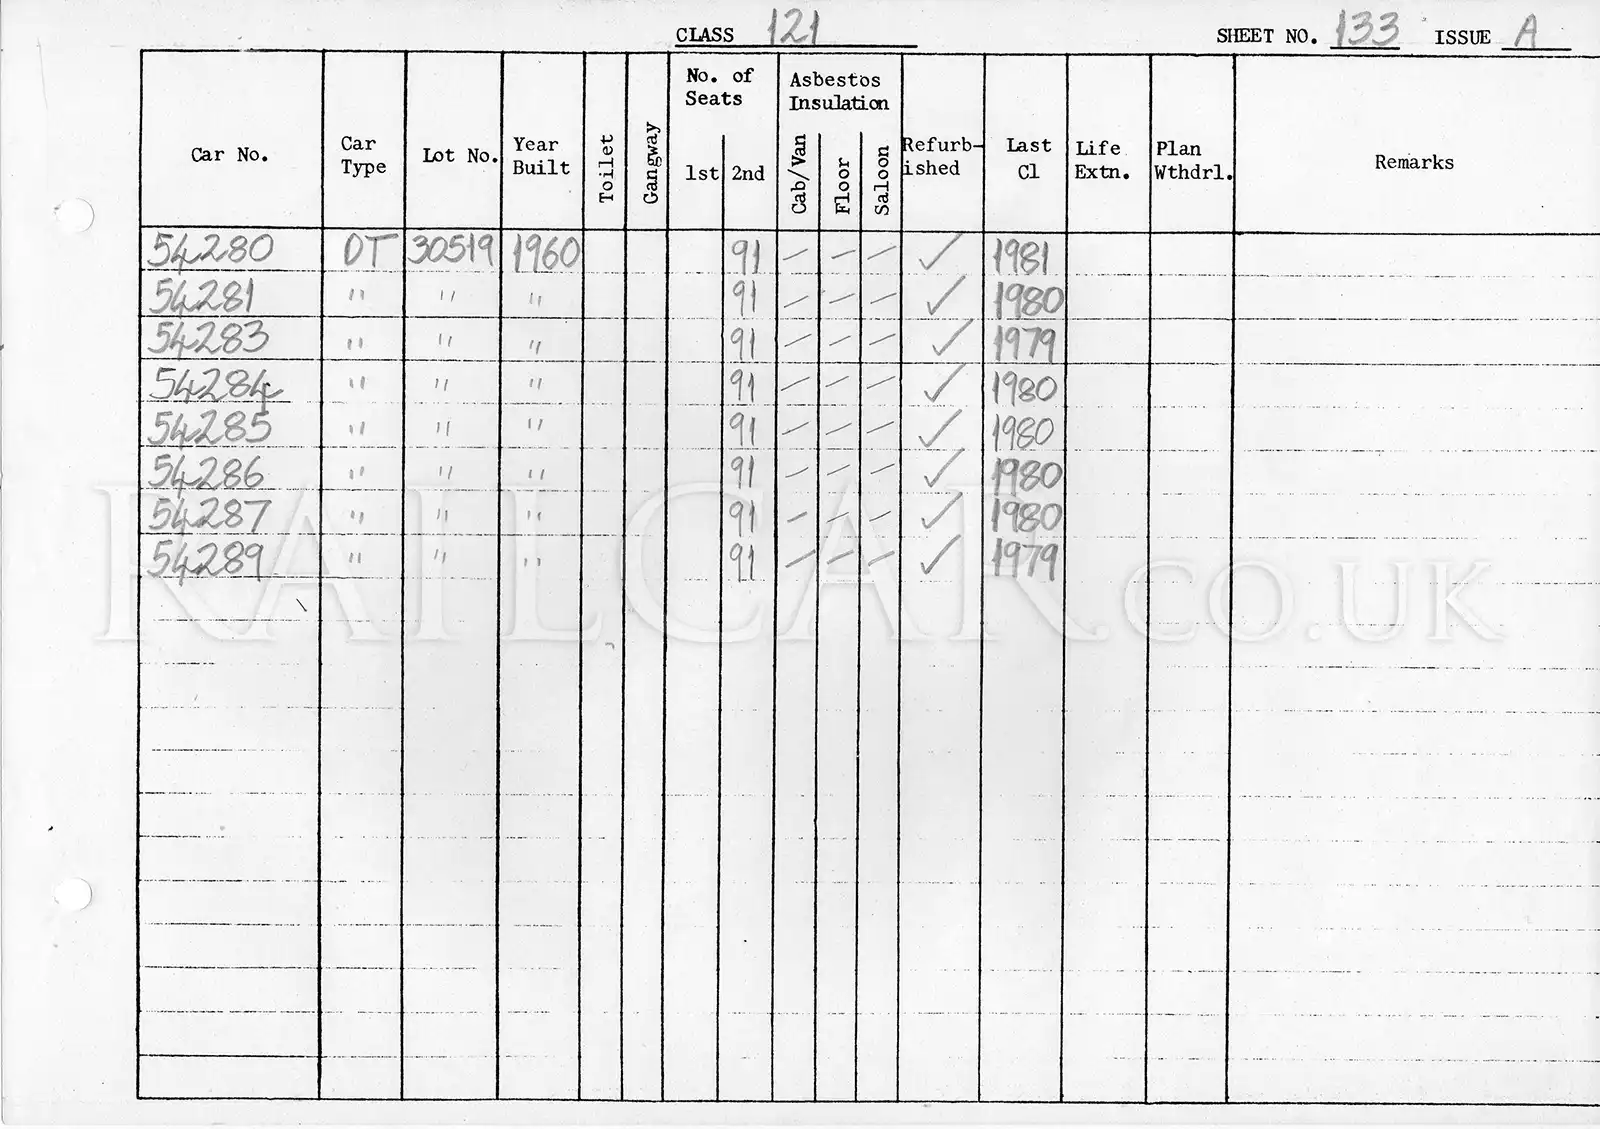 CLASS 121 SHEET NO. 133 ISSUE A
Car No. Car Type Lot No. Year Built Toilet Gangway No. of Seats 1st 2nd Asbestos Insulation Cab/Van Floor Saloon Refurb-ished Last Cl Life Extn. Plan Wthdrl. Remarks
54280 DT 30519 1960 91 – – – ✓ 1981
54281 " " " 91 – – – ✓ 1980
54283 " " " 91 – – – ✓ 1979
54284 " " " 91 – – – ✓ 1980
54285 " " " 91 – – – ✓ 1980
54286 " " " 91 – – – ✓ 1980
54287 " " " 91 – – – ✓ 1980
54289 " " " 91 – – – ✓ 1979
RAILCAR.CO.UK